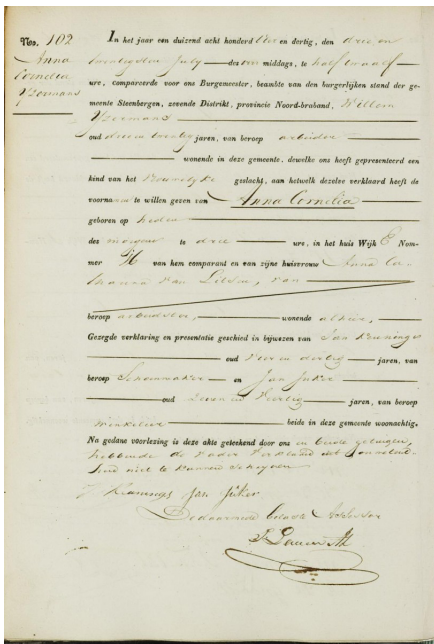 Nos. 102
Anna
Cornelia
In het jaar een duizend acht honderd en dertig, den drie en
twentigsten July des middags, te half twaalf
ure, compareerde voor ons Burgemeester, beambte van den burgerlijken stand der ge-
meente Steenbergen, zevende Distrikt, provincie Noord-braband, Willem
oud jaren, van beroep arbeider
wonende in deze gemeente, dewelke ons heeft gepresenteerd een
kind van het Vrouwelyke geslacht, aan hetwelk dezelve verklaard heeft de
voornamen te willen geven van Anna Cornelia
geboren op heden
des morgens te drie ure, in het huis Wijk E Nom-
mer van hem comparant en van zijne huisvrouw Anna
van
beroep arbeidster, wonende alhier,
Gezegde verklaring en presentatie geschied in bijwezen van Jan
oud Vier en dertig jaren, van
beroep Schoenmaker en Jan Juker
oud Zeven en Veertig jaren, van beroep
Winkelier beide in deze gemeente woonachtig.
Na gedane voorlezing is deze akte geteekend door ons en beide getuigen,
hebbende de Vader verklaard uit
heid niet te kunnen schryven
Jan Juker
De daarmede belaste